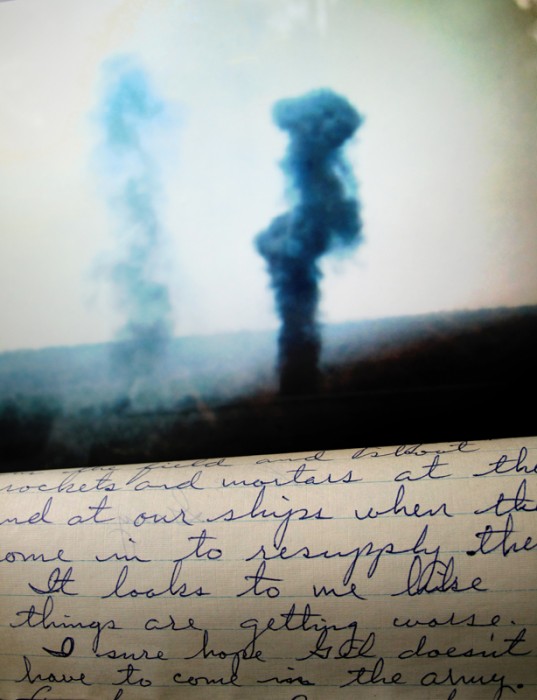 the field and shoot
rockets and mortars at the
nd at our ships when the
ome in to resupply the
It looks to me like
things are getting worse.
I sure hope Gil doesn't
have to come in the army.